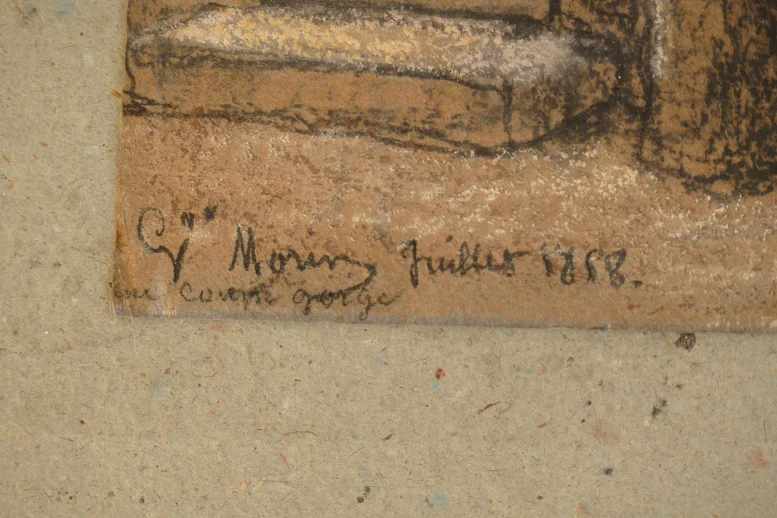 Gve Morin Juillet 1858.
un coupe gorge